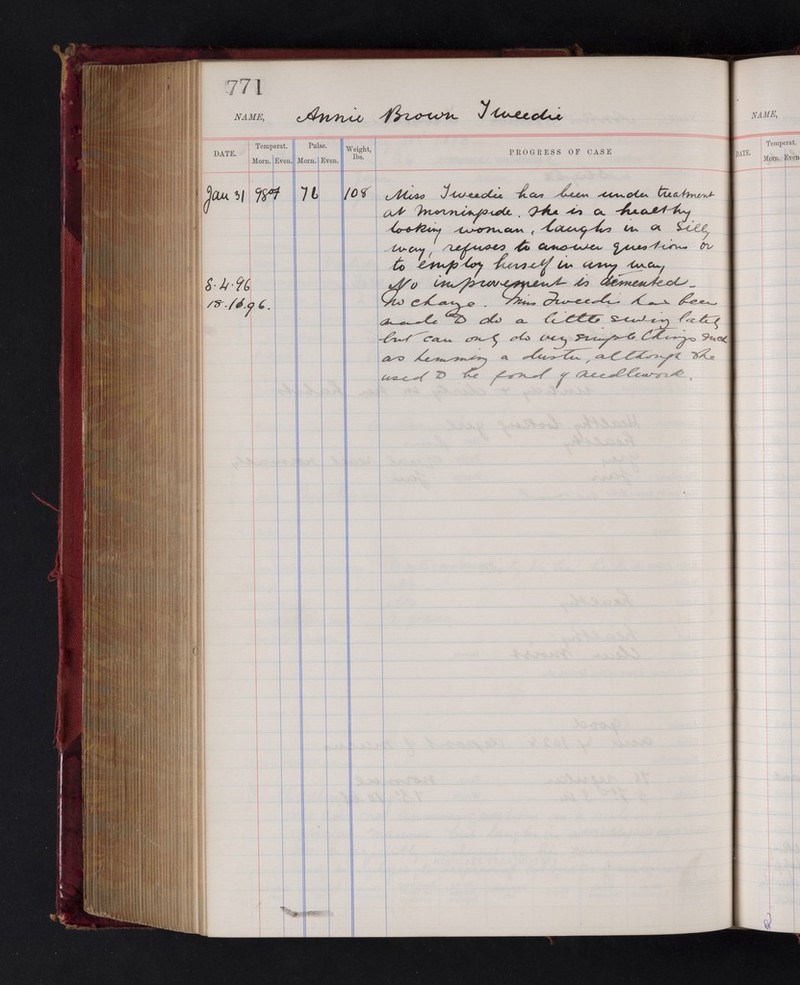 771
NAME, Annie Brown Tweedie
DATE. Temperat. Morn. Even. Pulse. Morn. Even. Weight, lbs. PROGRESS OF CASE
Jan 31 98.4 76 108 Miss Tweedie has been under treatment
at Morningside. She is a healthy
looking woman, laughs in a silly
way, refuses to answer questions or
to employ herself in any way
8.4.96 No improvement is demented.
18.10.96. No change. Miss Tweedie has been
made to do a little sewing lately
but can only do very simple things such
as hemming a duster, although she
used to be fond of needlework.
NAME,
DATE. Temperat. Morn. Even